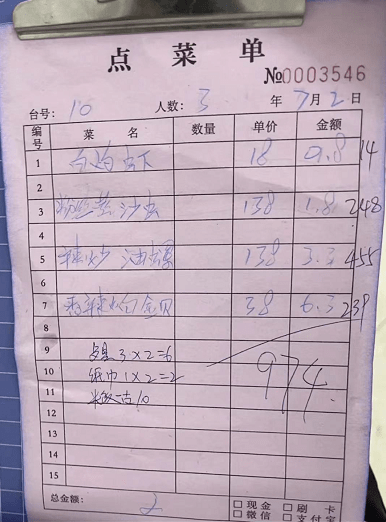 点菜单
№0003546
台号：10 人数：3 年 7月2日
编号 菜名 数量 单价 金额
1 白灼虾 18 0.8 14
2
3 粉丝蒸沙虫 138 1.8 248
4
5 辣炒油螺 138 3.3 455
6
7 香辣炒金贝 38 6.3 239
8
9 3×2=6
10 纸巾1×2=2
11 10
974
12
13
14
15
总金额：
□现金 □刷卡
□微信 □支付宝